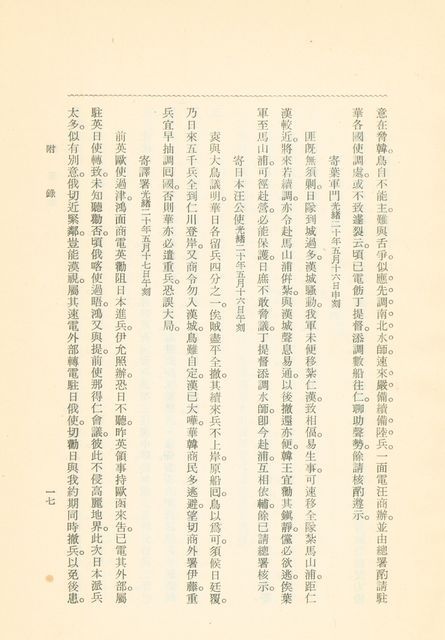 意在脅韓鳥自不能主難與舌爭似應先調南北水師速來嚴備續備陸兵一面電汪商辦並由總署酌請駐
華各國使調處或不致遽裂云頃已電飭丁提督添調數船往仁聊助聲勢餘請核酌遵示
寄葉軍門光緒二十年五月十六日申刻
匪旣無須剿日隊到城過多漢城騷動我軍未便移紮仁漢致相偪易生事可速移全隊紮馬山浦距仁
漢較近將來若續調亦令赴馬山浦倂紮與漢城聲息易通以後撤還亦便韓王宜勸其鎭靜儻必欲逃俟葉
軍至馬山浦可徑赴營必能保護日庶不敢脅議丁提督添調水師卽今赴浦互相依輔餘已請總署核示
寄日本汪公使光緒二十年五月十六日午刻
袁與大鳥議明華日各留兵四分之一俟賊盡平全撤其續來兵不上岸原船囘鳥以爲可須候日廷覆
乃日來五千兵全到仁川登岸又商令勿入漢城鳥難自定漢已大嘩華韓商民多逃避望切商外署伊藤重
兵宜早抽調囘國否則華亦必遣重兵恐誤大局
寄譯署光緒二十年五月十七日午刻
前英歐使過津鴻面商電英勸阻日本進兵伊允照辦恐日不聽昨英領事持歐函來告已電其外部屬
駐英日使轉致未知聽勸否頃俄喀使過晤鴻又與提前使那得仁會議彼此不侵高麗地界此次日本派兵
太多似有別意俄切近緊鄰豈能漠視屬其速電外部轉電駐日俄使切勸日與我約期同時撤兵以免後患
附錄
一七